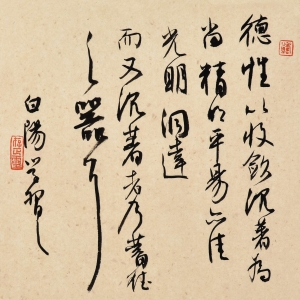 德性以收斂沉著為
尚精明平易亦佳
光明洞達
而又沉著者乃蓄
之器耳
白陽